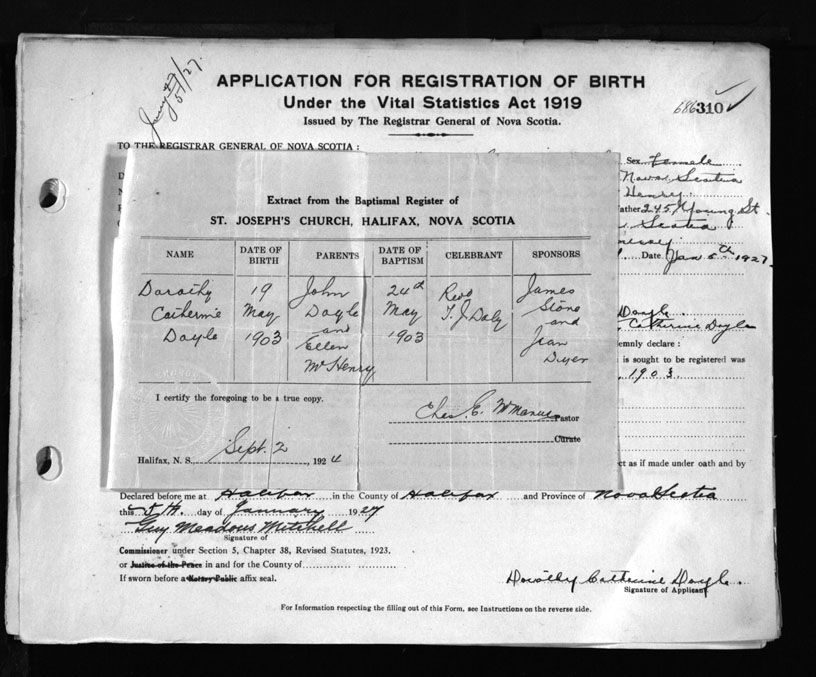 APPLICATION FOR REGISTRATION OF BIRTH
Under the Vital Statistics Act 1919
Issued by The Registrar General of Nova Scotia.
686 310
TO THE REGISTRAR GENERAL OF NOVA SCOTIA :
Sex Female
Nova Scotia
Henry
Father 245 Young St
Scotia
Date Jan 5th 1927
Extract from the Baptismal Register of
ST. JOSEPH'S CHURCH, HALIFAX, NOVA SCOTIA
NAME DATE OF BIRTH PARENTS DATE OF BAPTISM CELEBRANT SPONSORS
Dorothy 19 John 24th Rev James
Catherine May Doyle May T. J. Daly Stone
Doyle 1903 and 1903 and
Ellen Jean
McHenry Dyer
I certify the foregoing to be a true copy.
Chas. E. McManus Pastor
Curate
Halifax, N. S. Sept. 2, 1924
Doyle
Catherine Doyle
emnly declare :
is sought to be registered was
, 1903.
ct as if made under oath and by
Declared before me at Halifax in the County of Halifax and Province of Nova Scotia
this 5th day of January 1927
Guy Meadows Mitchell
Signature of
Commissioner under Section 5, Chapter 38, Revised Statutes, 1923,
or Justice of the Peace in and for the County of
If sworn before a Notary Public affix seal.
Dorothy Catherine Doyle
Signature of Applicant
For Information respecting the filling out of this Form, see Instructions on the reverse side.